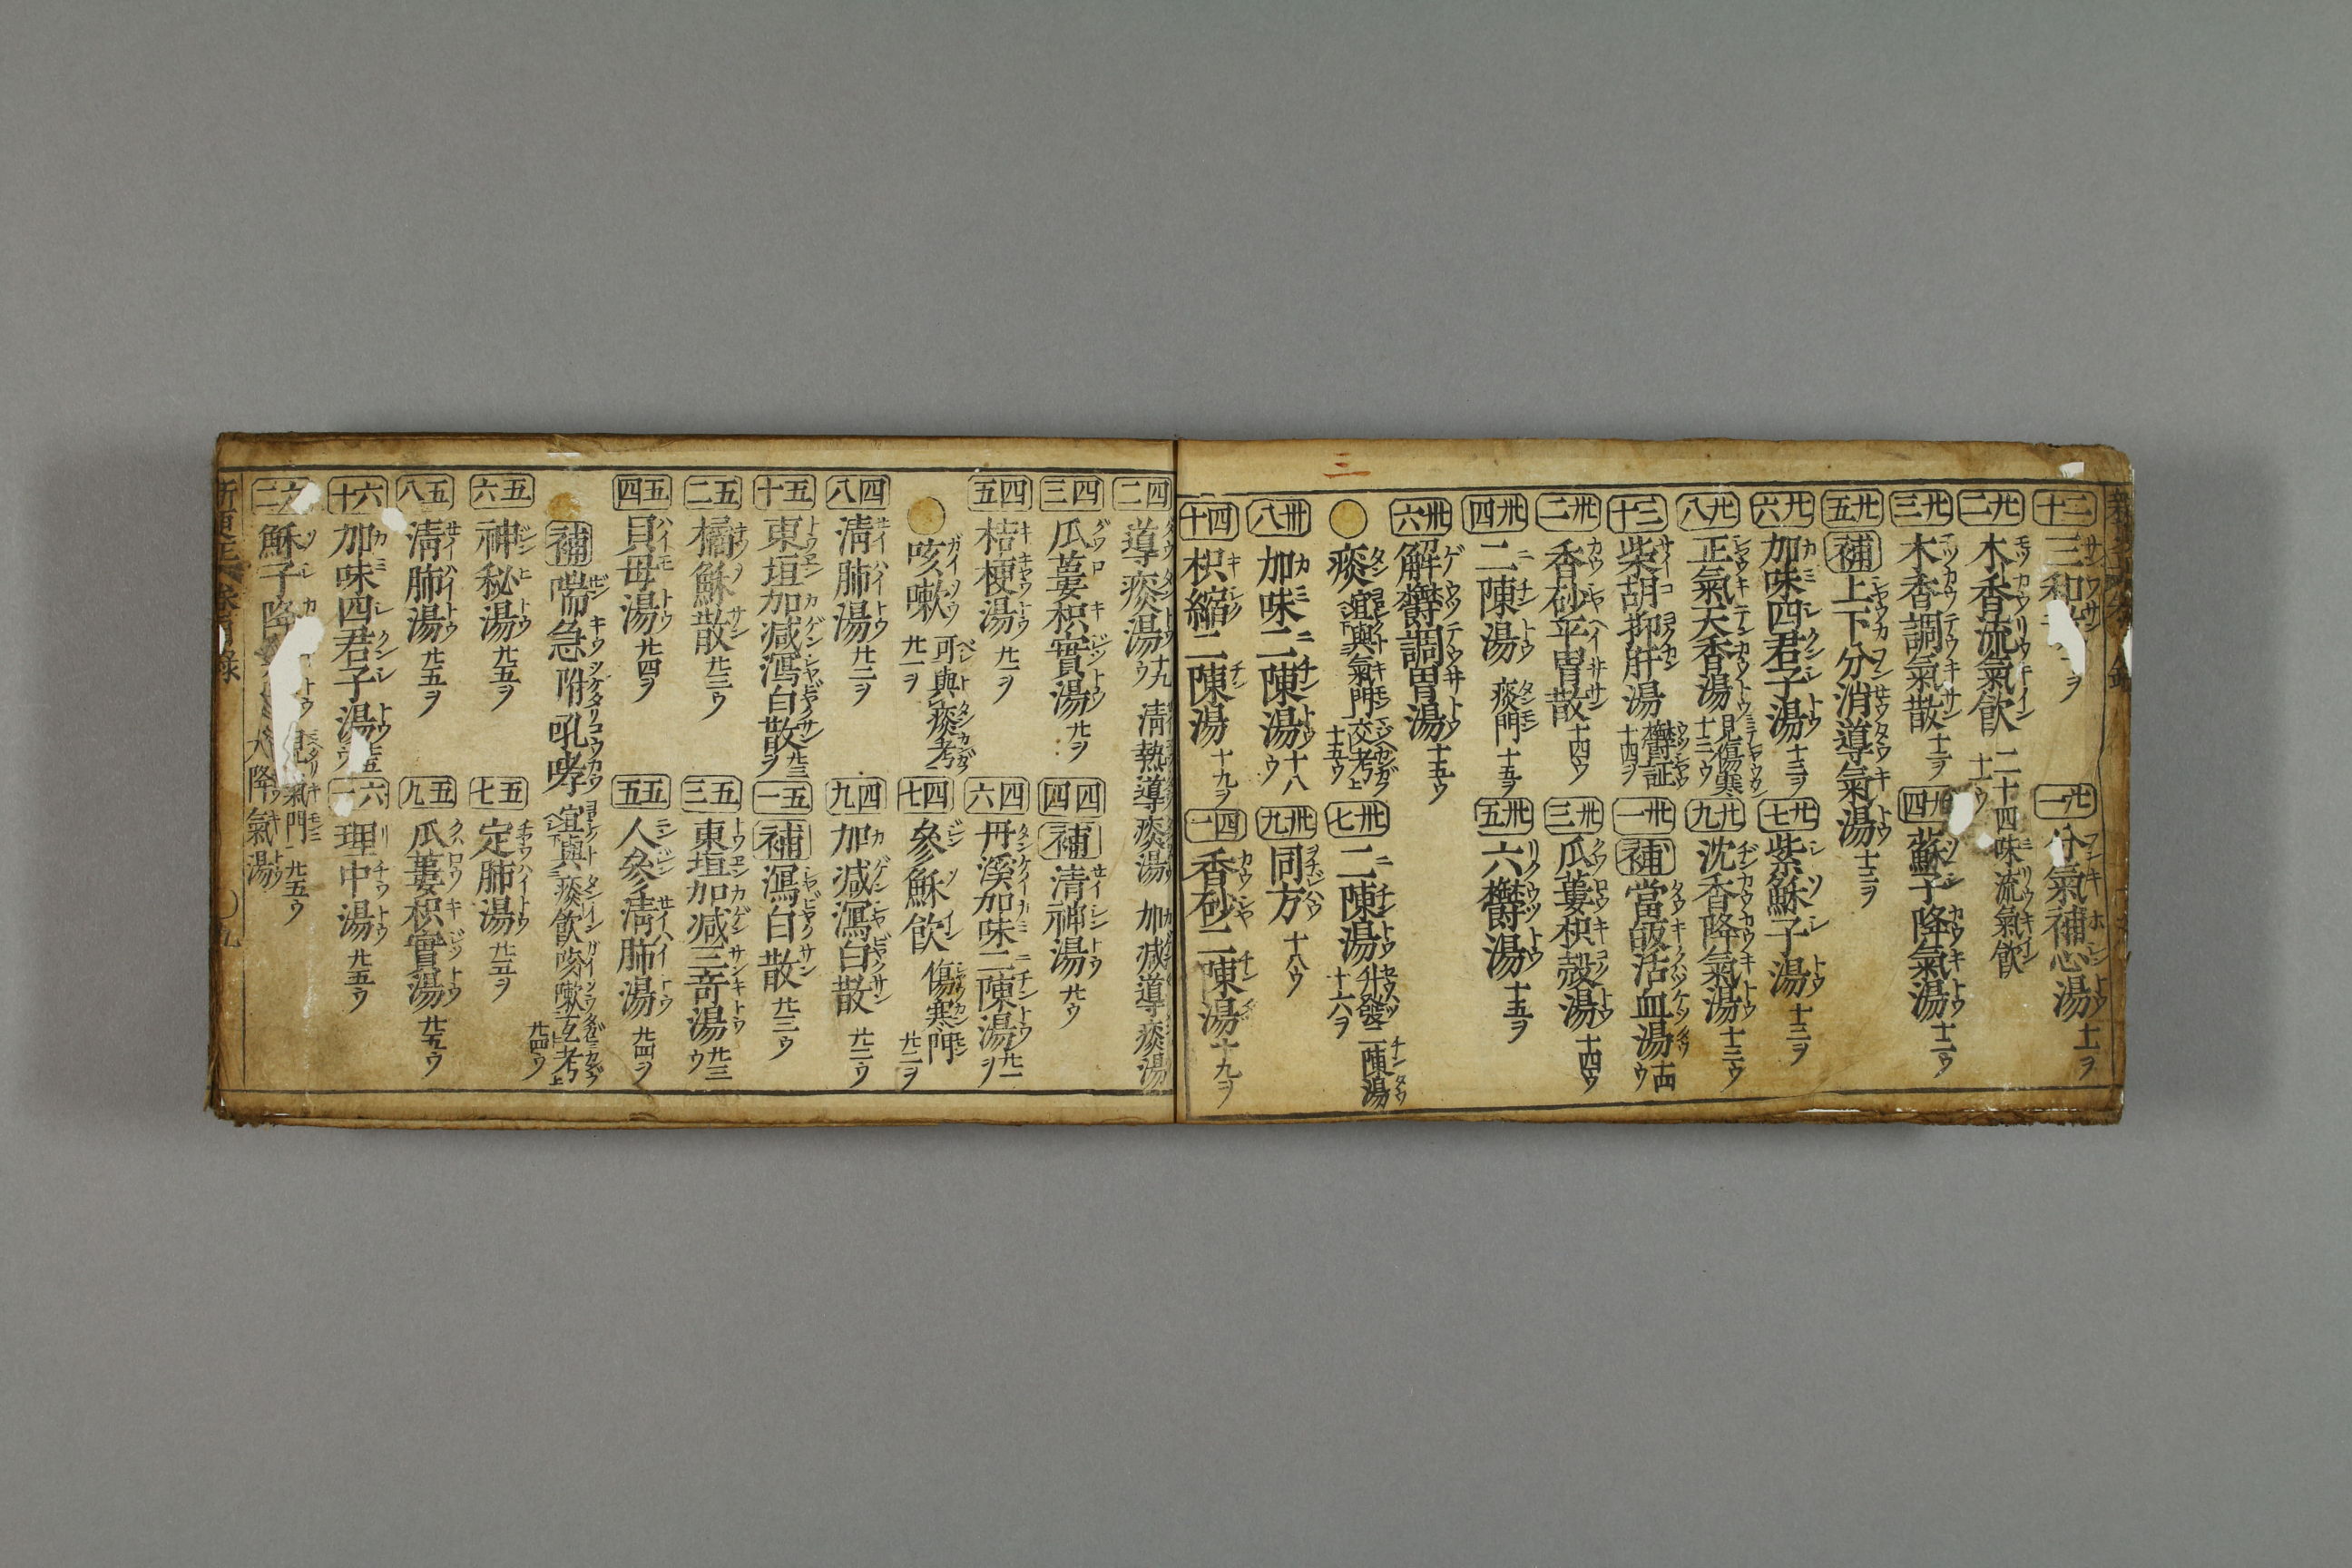 三
二十 三和散 ヲ
廿一 分氣補心湯 十一ヲ
廿二 木香流氣飲 二十四味流氣飲 十一ウ
廿三 木香調氣散 十二ヲ
廿四 蘇子降氣湯 十二ウ
廿五 補 上下分消導氣湯 十三ヲ
廿六 加味四君子湯 十三ヲ
廿七 紫蘇子湯 十三ヲ
廿八 正氣天香湯 見傷寒 十三ウ
廿九 沈香降氣湯 十三ウ
三十 柴胡抑肝湯 欝証 十四ヲ
卅一 補 當皈活血湯 十四ウ
卅二 香砂平胃散 十四ウ
卅三 瓜蔞枳殻湯 十四ウ
卅四 二陳湯 痰門 十五ヲ
卅五 六欝湯 十五ヲ
卅六 解欝調胃湯 十五ウ
痰 宜與氣門交考 十五ウ
卅七 二陳湯 升發二陳湯 十六ヲ
卅八 加味二陳湯 十八ウ
卅九 同方 十八ウ
四十 枳縮二陳湯 十九ヲ
四一 香砂二陳湯 十九ヲ
四二 導痰湯 十九ウ 清熱導痰湯 加减導痰湯
四三 瓜蔞枳實湯 廿ヲ
四四 補 清神湯 廿ウ
四五 桔梗湯 廿一ヲ
四六 丹溪加味二陳湯 廿一ヲ
咳嗽 可與痰考 廿一ヲ
四七 參穌飲 傷寒門 廿二ヲ
四八 清肺湯 廿二ヲ
四九 加减瀉白散 廿二ウ
五十 東垣加减瀉白散 廿三ヲ
五一 補 瀉白散 廿三ウ
五二 橘穌散 廿三ウ
五三 東垣加减三竒湯 廿三ウ
五四 貝母湯 廿四ヲ
五五 人參清肺湯 廿四ヲ
補 喘急 附吼哮 宜與痰飲咳嗽互考 廿四ウ
五六 神秘湯 廿五ヲ
五七 定肺湯 廿五ヲ
五八 清肺湯 廿五ヲ
五九 瓜蔞枳實湯 廿五ウ
六十 加味四君子湯 廿五ウ
六一 理中湯 廿五ウ
六二 穌子降 氣門 廿五ウ 大降氣湯